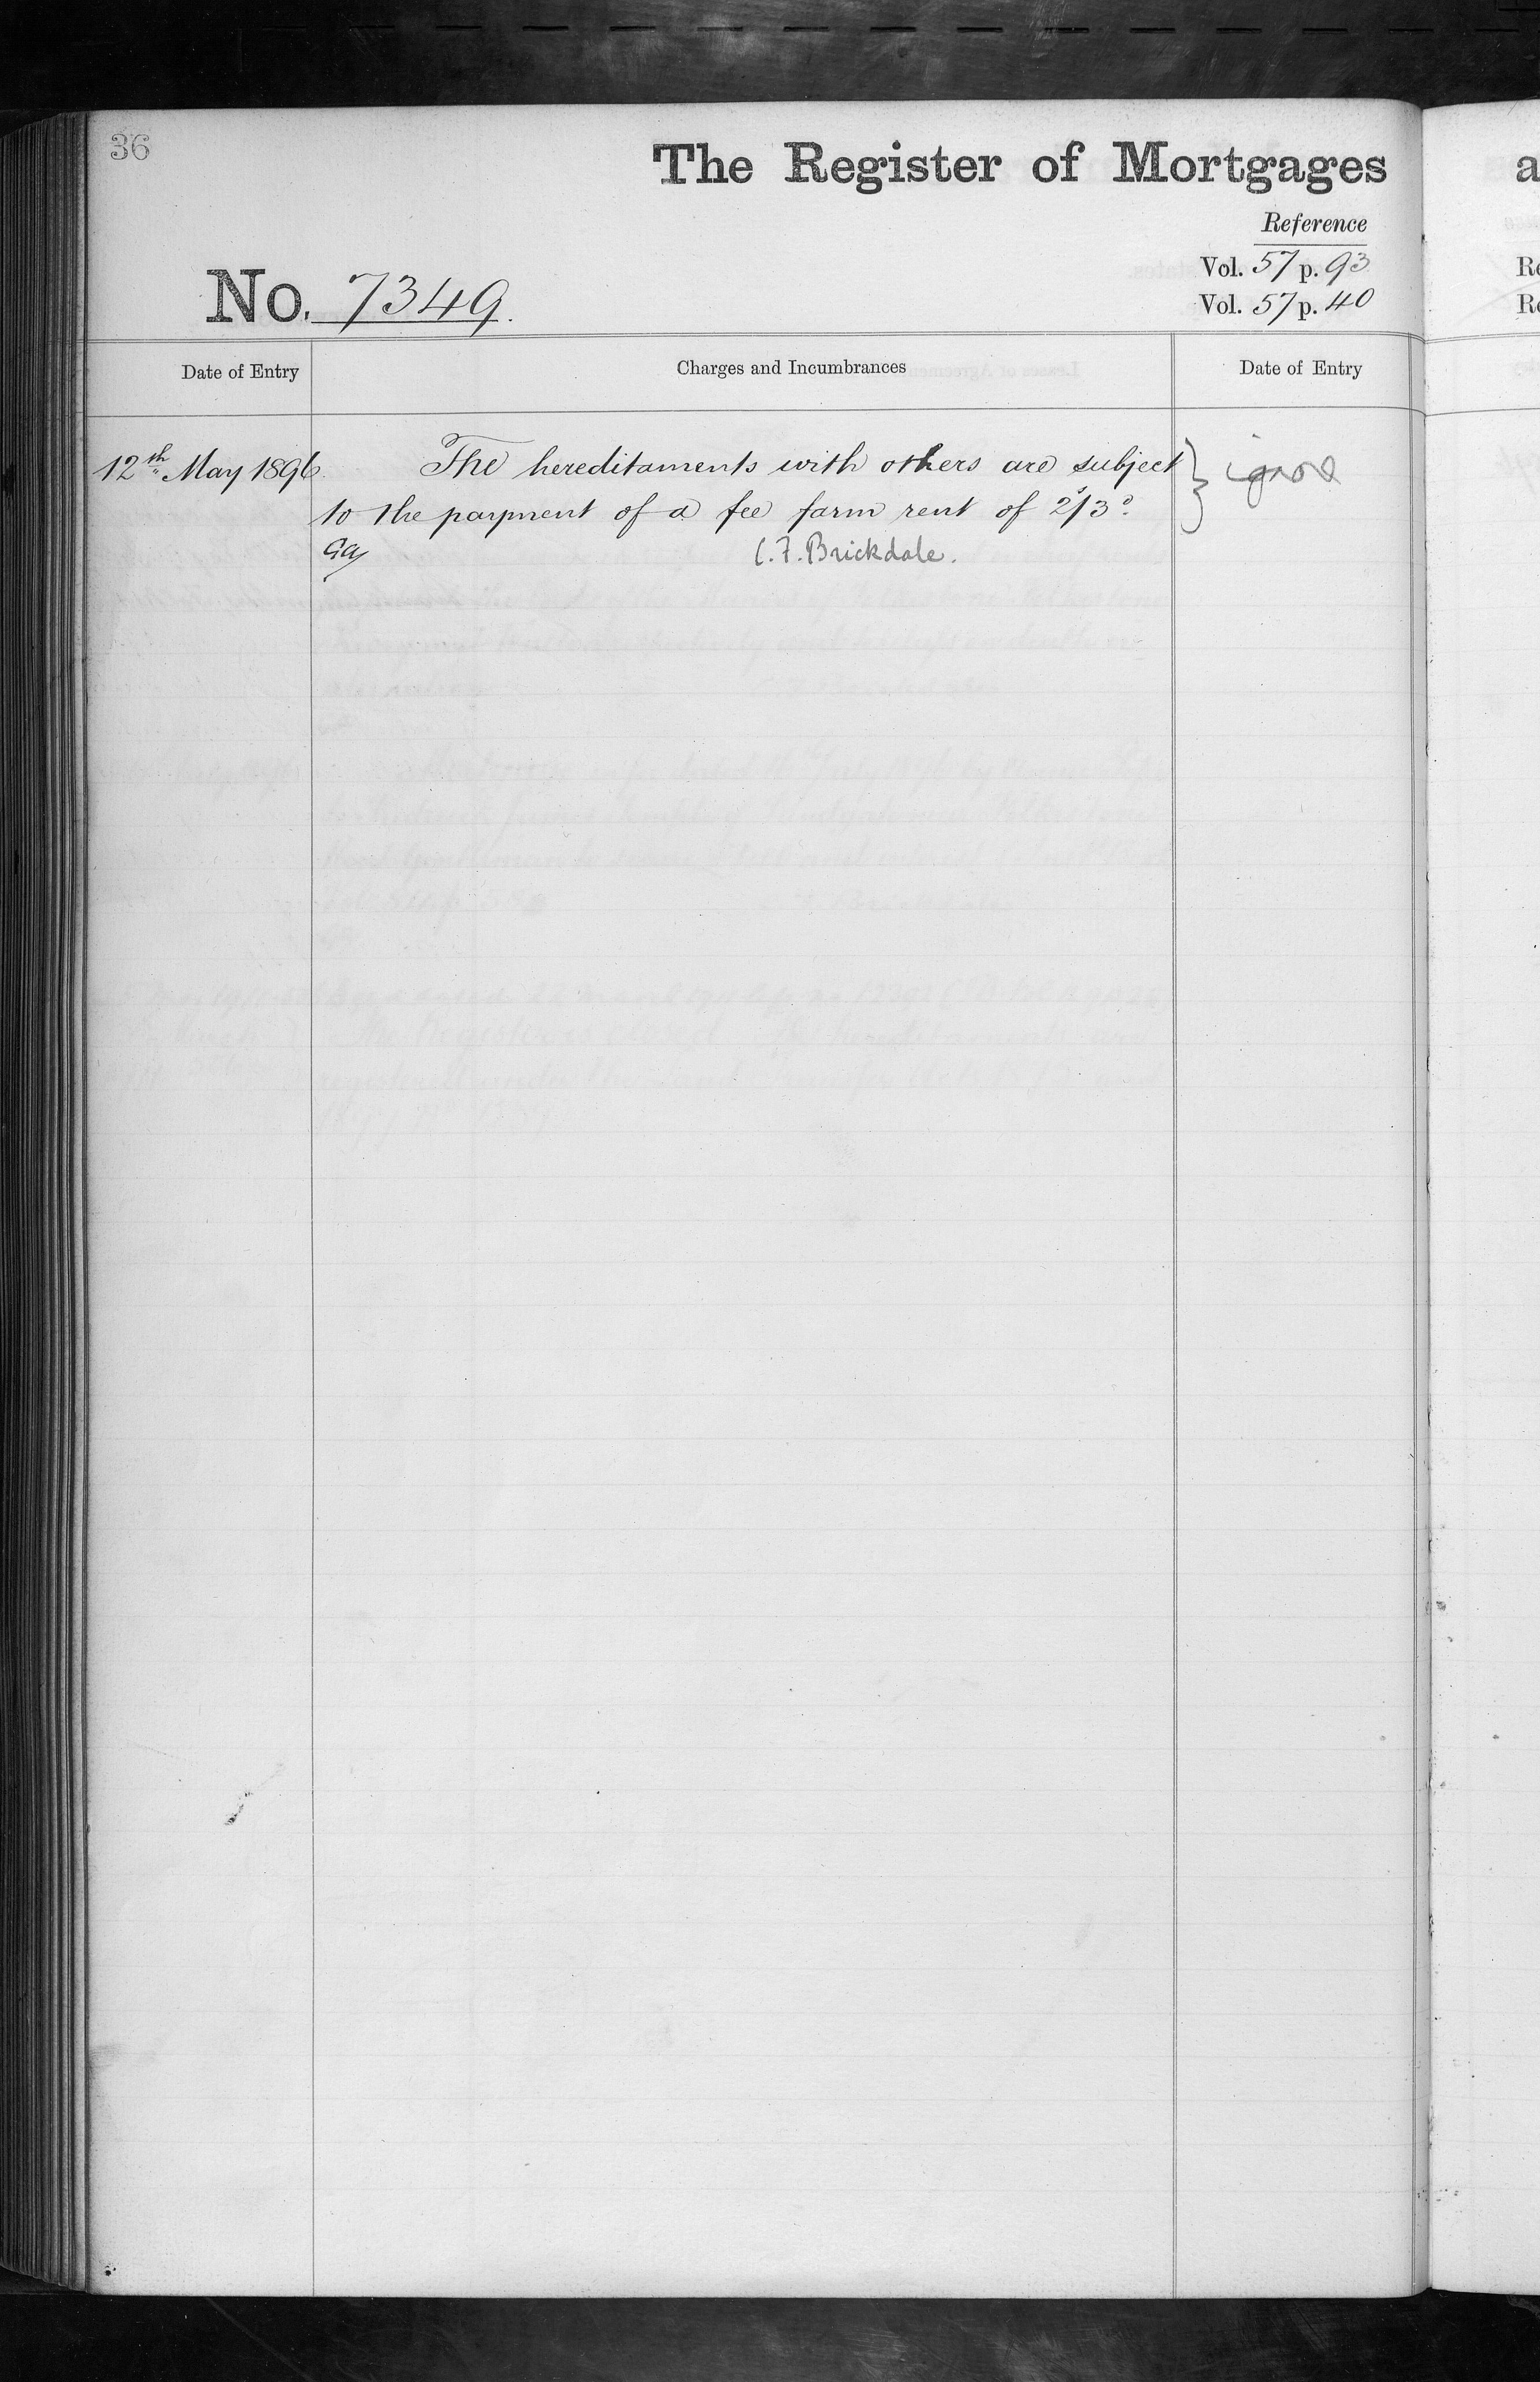 36
The Register of Mortgages
Reference
Vol. 57 p. 93
Vol. 57 p. 40
No. 7349.
Date of Entry
Charges and Incumbrances
Date of Entry
12th May 1896.
The hereditaments with others are subject
to the payment of a fee farm rent of 2s/3d.
C. F. Brickdale.
ignore
a
Re
Re